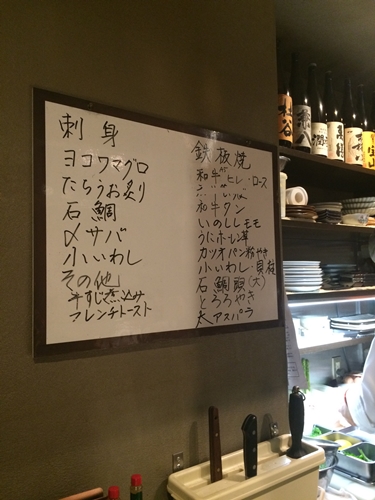 刺身
ヨコワマグロ
たちうお炙り
石鯛
〆サバ
小いわし
その他
牛すじ煮込み
フレンチトースト
鉄板焼
和牛ヒレ・ロース
和牛タン
いのししモモ
うにホーレン草
カツオパン粉やき
小いわし
石鯛 (大)
とろろやき
太アスパラ